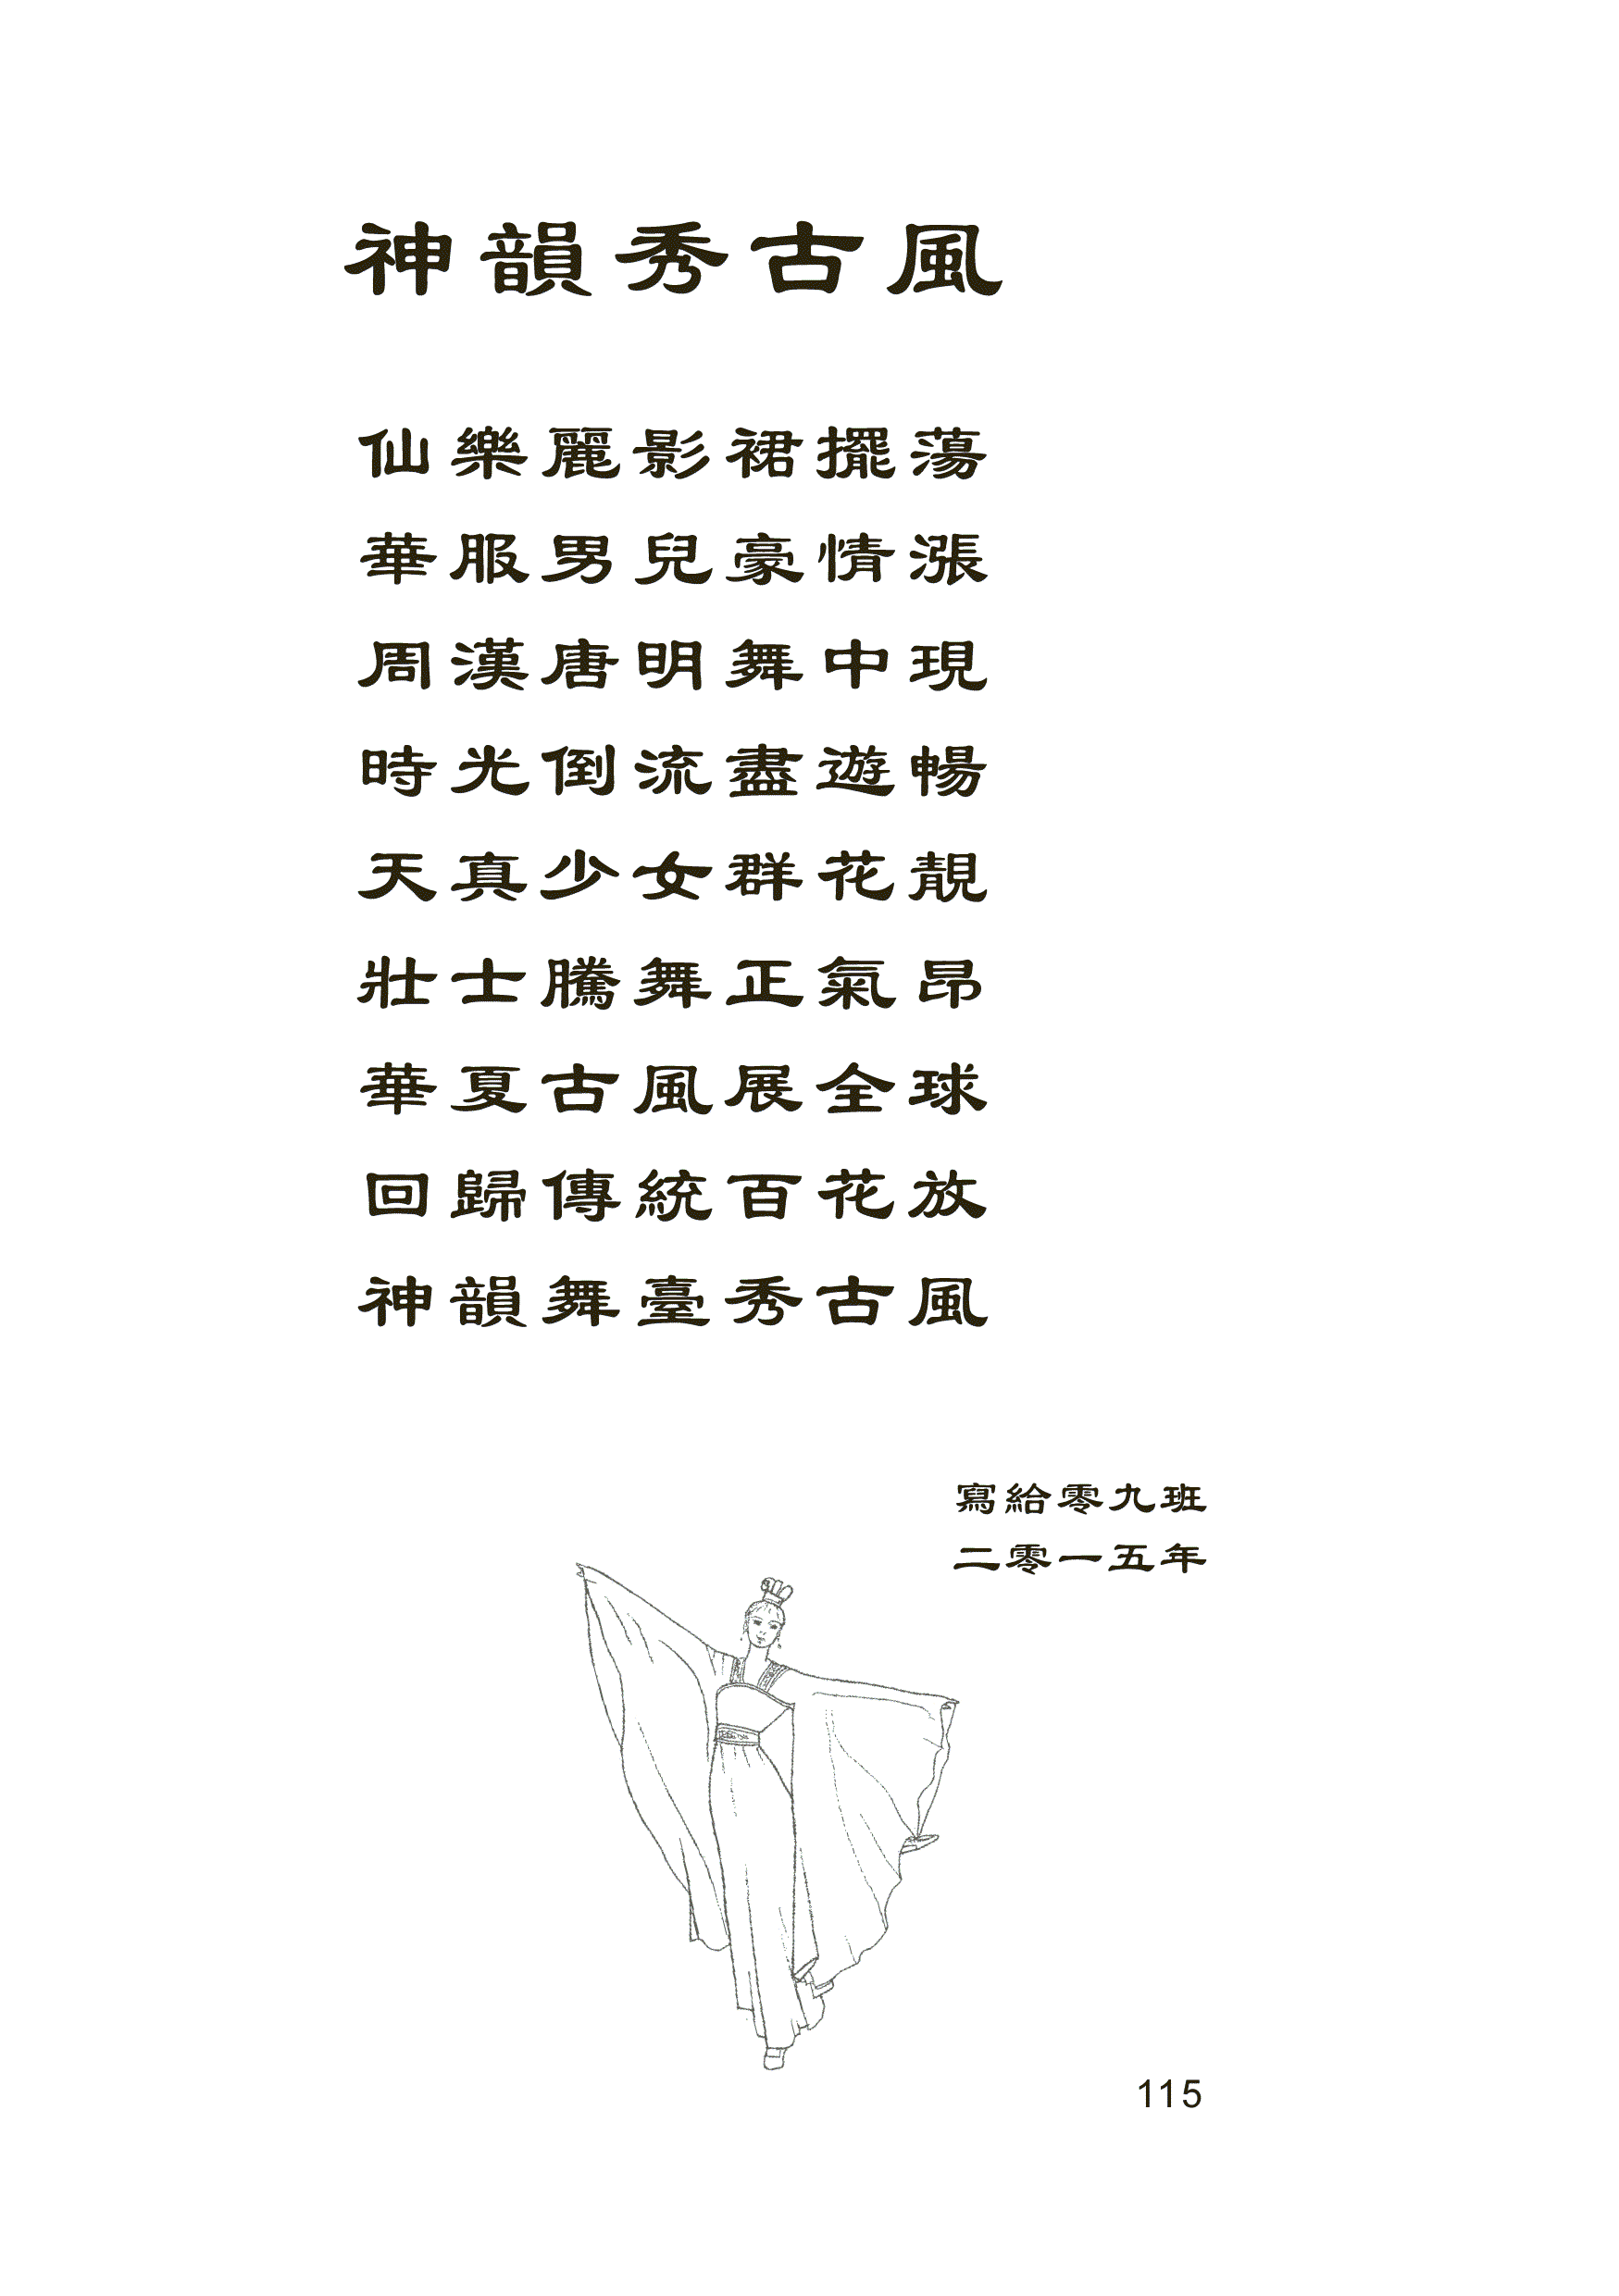 神韻秀古風
仙樂麗影裙擺蕩
華服男兒豪情漲
周漢唐明舞中現
時光倒流盡遊暢
天真少女群花靚
壯士騰舞正氣昂
華夏古風展全球
回歸傳統百花放
神韻舞臺秀古風
寫給零九班
二零一五年
115